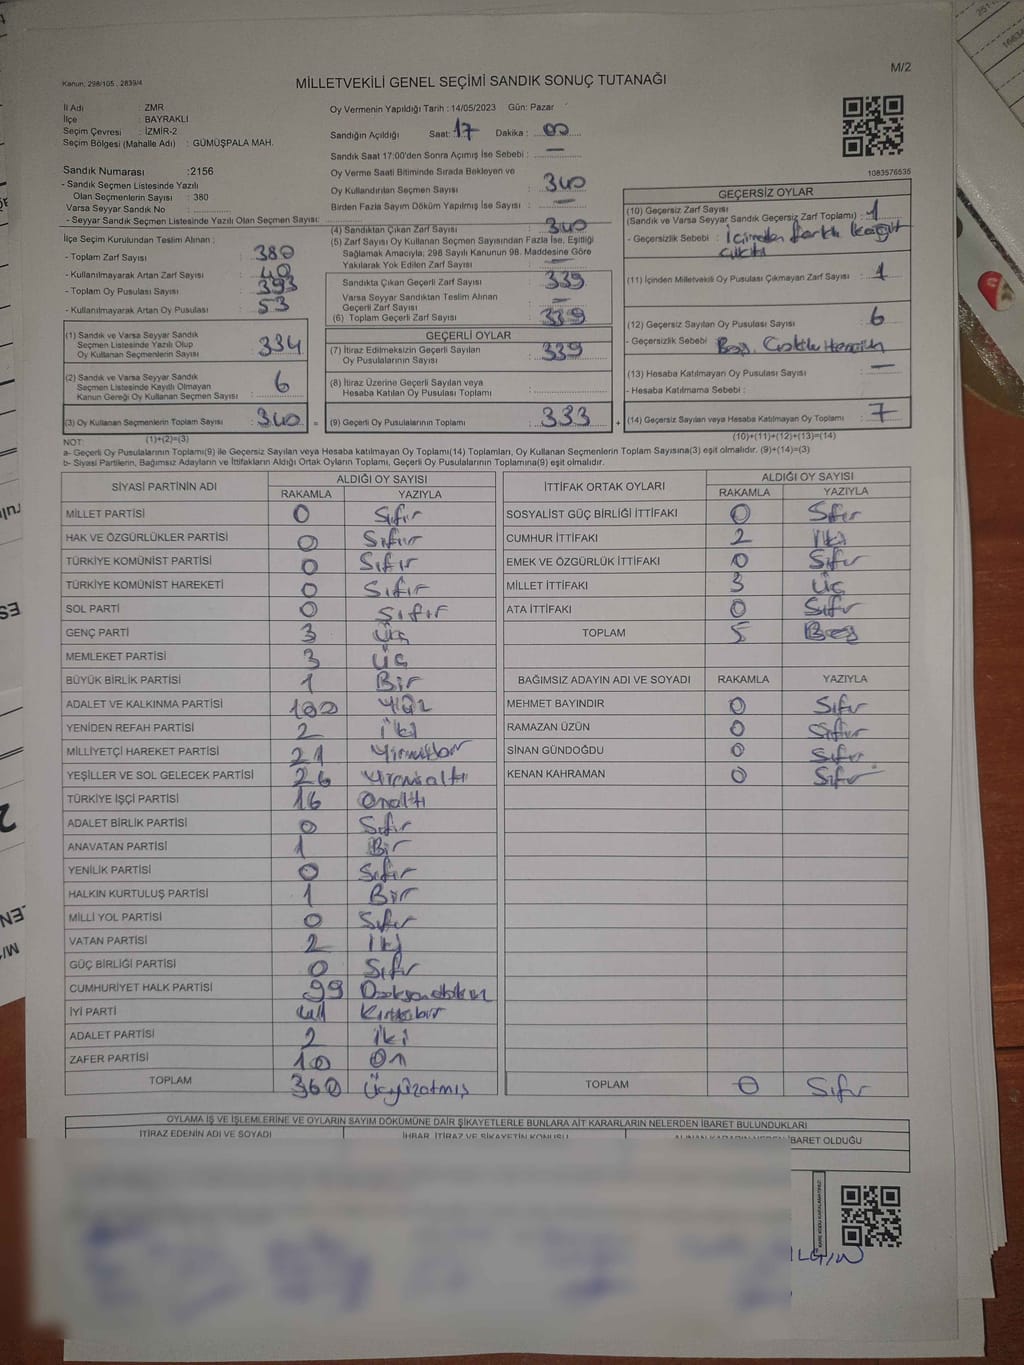 M/2
Kanun: 298/105 , 2839/4
MİLLETVEKİLİ GENEL SEÇİMİ SANDIK SONUÇ TUTANAĞI
İl Adı : ZMR
İlçe : BAYRAKLI
Seçim Çevresi : İZMİR-2
Seçim Bölgesi (Mahalle Adı) : GÜMÜŞPALA MAH.
Oy Vermenin Yapıldığı Tarih : 14/05/2023 Gün: Pazar
Sandığın Açıldığı Saat: 17 Dakika : 00
Sandık Saat 17:00'den Sonra Açımış İse Sebebi : —
Oy Verme Saati Bitiminde Sırada Bekleyen ve
Oy Kullandırılan Seçmen Sayısı : 340
Birden Fazla Sayım Döküm Yapılmış İse Sayısı : —
1083576535
Sandık Numarası :2156
- Sandık Seçmen Listesinde Yazılı
Olan Seçmenlerin Sayısı : 380
Varsa Seyyar Sandık No :
- Seyyar Sandık Seçmen Listesinde Yazılı Olan Seçmen Sayısı:
İlçe Seçim Kurulundan Teslim Alınan :
- Toplam Zarf Sayısı : 380
- Kullanılmayarak Artan Zarf Sayısı : 40
- Toplam Oy Pusulası Sayısı : 393
- Kullanılmayarak Artan Oy Pusulası : 53
(1) Sandık ve Varsa Seyyar Sandık
Seçmen Listesinde Yazılı Olup
Oy Kullanan Seçmenlerin Sayısı : 334
(2) Sandık ve Varsa Seyyar Sandık
Seçmen Listesinde Kayıtlı Olmayan
Kanun Gereği Oy Kullanan Seçmen Sayısı : 6
(3) Oy Kullanan Seçmenlerin Toplam Sayısı : 340 =
(4) Sandıktan Çıkan Zarf Sayısı : 340
(5) Zarf Sayısı Oy Kullanan Seçmen Sayısından Fazla İse, Eşitliği
Sağlamak Amacıyla; 298 Sayılı Kanunun 98. Maddesine Göre
Yakılarak Yok Edilen Zarf Sayısı : —
Sandıkta Çıkan Geçerli Zarf Sayısı : 339
Varsa Seyyar Sandıktan Teslim Alınan
Geçerli Zarf Sayısı : —
(6) Toplam Geçerli Zarf Sayısı : 339
GEÇERLİ OYLAR
(7) İtiraz Edilmeksizin Geçerli Sayılan
Oy Pusulalarının Sayısı : 339
(8) İtiraz Üzerine Geçerli Sayılan veya
Hesaba Katılan Oy Pusulası Toplamı :
(9) Geçerli Oy Pusulalarının Toplamı : 333 +
GEÇERSİZ OYLAR
(10) Geçersiz Zarf Sayısı
(Sandık ve Varsa Seyyar Sandık Geçersiz Zarf Toplamı) : 1
- Geçersizlik Sebebi : İçinden farklı kağıt
çıktı
(11) İçinden Milletvekili Oy Pusulası Çıkmayan Zarf Sayısı : 1
(12) Geçersiz Sayılan Oy Pusulası Sayısı : 6
- Geçersizlik Sebebi : Boş,
(13) Hesaba Katılmayan Oy Pusulası Sayısı : —
- Hesaba Katılmama Sebebi :
(14) Geçersiz Sayılan veya Hesaba Katılmayan Oy Toplamı : 7
NOT: (1)+(2)=(3)
(10)+(11)+(12)+(13)=(14)
a- Geçerli Oy Pusulalarının Toplamı(9) ile Geçersiz Sayılan veya Hesaba katılmayan Oy Toplamı(14) Toplamları, Oy Kullanan Seçmenlerin Toplam Sayısına(3) eşit olmalıdır. (9)+(14)=(3)
b- Siyasi Partilerin, Bağımsız Adayların ve İttifakların Aldığı Ortak Oyların Toplamı, Geçerli Oy Pusulalarının Toplamına(9) eşit olmalıdır.
SİYASİ PARTİNİN ADI ALDIĞI OY SAYISI
RAKAMLA YAZIYLA
MİLLET PARTİSİ 0 Sıfır
HAK VE ÖZGÜRLÜKLER PARTİSİ 0 Sıfır
TÜRKİYE KOMÜNİST PARTİSİ 0 Sıfır
TÜRKİYE KOMÜNİST HAREKETİ 0 Sıfır
SOL PARTİ 0 Sıfır
GENÇ PARTİ 3 Üç
MEMLEKET PARTİSİ 3 Üç
BÜYÜK BİRLİK PARTİSİ 1 Bir
ADALET VE KALKINMA PARTİSİ 100 Yüz
YENİDEN REFAH PARTİSİ 2 İki
MİLLİYETÇİ HAREKET PARTİSİ 21 Yirmibir
YEŞİLLER VE SOL GELECEK PARTİSİ 26 Yirmialtı
TÜRKİYE İŞÇİ PARTİSİ 16 Onaltı
ADALET BİRLİK PARTİSİ 0 Sıfır
ANAVATAN PARTİSİ 1 Bir
YENİLİK PARTİSİ 0 Sıfır
HALKIN KURTULUŞ PARTİSİ 1 Bir
MİLLİ YOL PARTİSİ 0 Sıfır
VATAN PARTİSİ 2 İki
GÜÇ BİRLİĞİ PARTİSİ 0 Sıfır
CUMHURİYET HALK PARTİSİ 99 Doksandokuz
İYİ PARTİ 41 Kırkbir
ADALET PARTİSİ 2 iki
ZAFER PARTİSİ 10 On
TOPLAM 360 Üçyüzatmış
İTTİFAK ORTAK OYLARI ALDIĞI OY SAYISI
RAKAMLA YAZIYLA
SOSYALİST GÜÇ BİRLİĞİ İTTİFAKI 0 Sıfır
CUMHUR İTTİFAKI 2 İki
EMEK VE ÖZGÜRLÜK İTTİFAKI 0 Sıfır
MİLLET İTTİFAKI 3 Üç
ATA İTTİFAKI 0 Sıfır
TOPLAM 5 Beş
BAĞIMSIZ ADAYIN ADI VE SOYADI RAKAMLA YAZIYLA
MEHMET BAYINDIR 0 Sıfır
RAMAZAN ÜZÜN 0 Sıfır
SİNAN GÜNDOĞDU 0 Sıfır
KENAN KAHRAMAN 0 Sıfır
TOPLAM 0 Sıfır
OYLAMA İŞ VE İŞLEMLERİNE VE OYLARIN SAYIM DÖKÜMÜNE DAİR ŞİKAYETLERLE BUNLARA AİT KARARLARIN NELERDEN İBARET BULUNDUKLARI
İTİRAZ EDENİN ADI VE SOYADI İHBAR, İTİRAZ VE ŞİKAYETİN KONUSU İBARET OLDUĞU